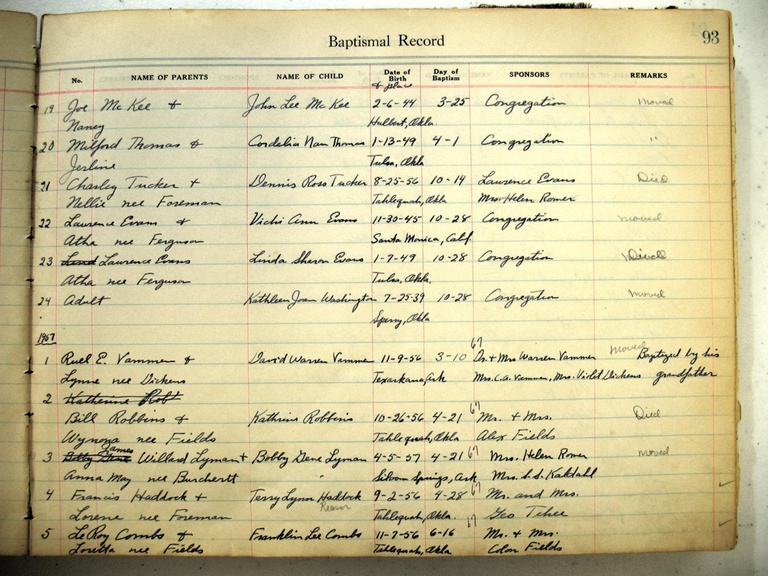 Baptismal Record 93
No. NAME OF PARENTS NAME OF CHILD Date of Birth & place Day of Baptism SPONSORS REMARKS
19 Joe McKee & John Lee McKee 2-6-44 3-25 Congregation moved
Nancy Hulbert, Okla.
20 Milford Thomas & Cordelia Nan Thomas 1-13-49 4-1 Congregation "
Jerline Tulsa, Okla
21 Charley Tucker + Dennis Ross Tucker 8-25-56 10-14 Laurence Evans Died
Nellie nee Foreman Tahlequah, Okla Mrs. Helen Romer
22 Laurence Evans & Vicki Ann Evans 11-30-45 10-28 Congregation moved
Atha nee Ferguson Santa Monica, Calif.
23 Laurence Evans Linda Sharon Evans 1-7-49 10-28 Congregation
Atha nee Ferguson Tulsa, Okla.
24 Adult Kathleen Joan Washington 7-25-39 10-28 Congregation moved
Sperry, Okla
1957
1 Ruel E. Vammen & David Warren Vammen 11-9-56 3-10 67 Dr. + Mrs Warren Vammen moved Baptized by his
Lynne nee Dickens Texarkana, Ark Mrs. C.A. Vammen, Mrs. Violet Dickens grandfather
2 Katherine Rob
Bill Robbins & Kathrine Robbins 10-26-56 4-21 67 Mr. + Mrs. Died
Wynona nee Fields Tahlequah, Okla Alex Fields
3 Betty Gene James Willard Lyman + Bobby Gene Lyman 4-5-57 4-21 67 Mrs. Helen Romer moved
Anna May nee Burchertt " Siloam Springs, Ark Mrs.
4 Francis Haddock + Terry Lynn Haddock 9-2-56 4-28 67 Mr. and Mrs.
Lorene nee Foreman Tahlequah, Okla. Geo Tehee
5 LeRoy Combs & Franklin Lee Combs 11-7-56 6-16 67 Mr. + Mrs.
Loretta nee Fields Tahlequah, Okla Colon Fields